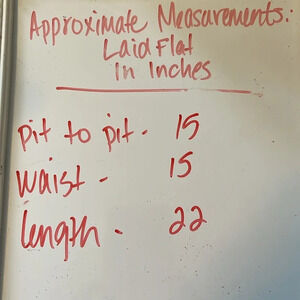 Approximate Measurements:
Laid Flat
In Inches
pit to pit - 15
waist - 15
length - 22